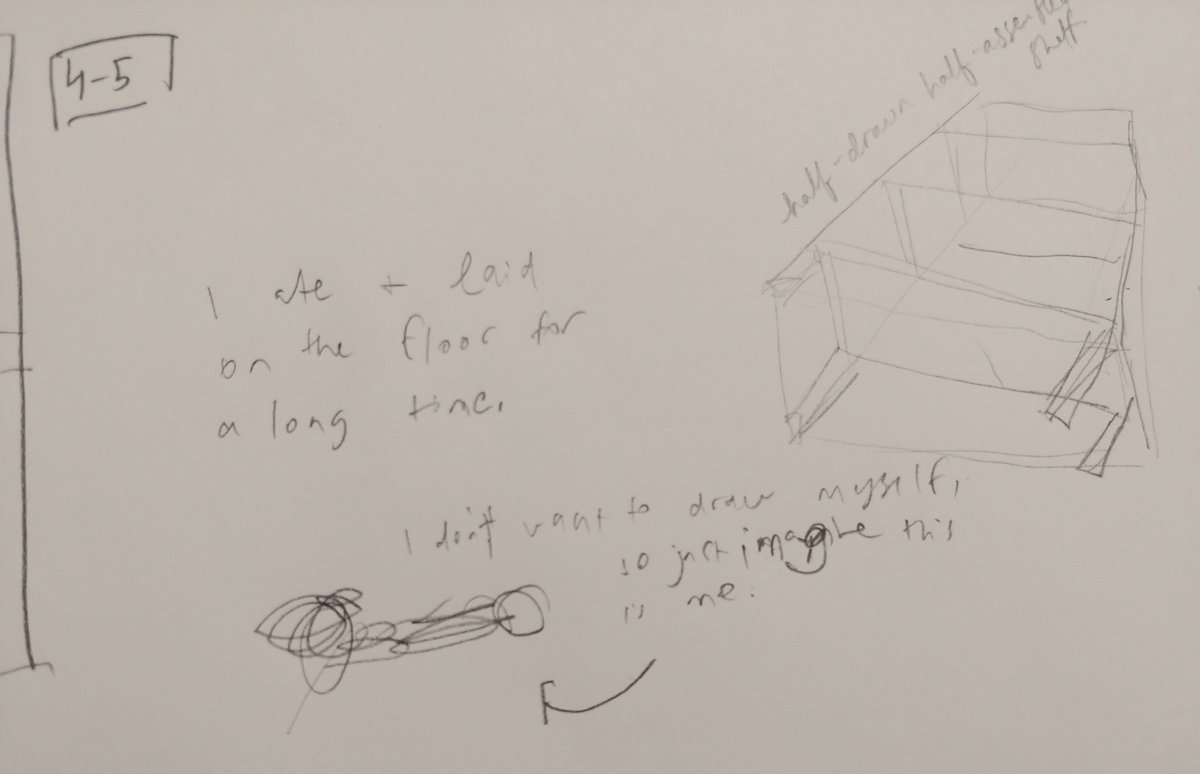 4-5
half-drawn half-assembled
shelf
I ate + laid
on the floor for
a long time.
I don't want to draw myself,
so just imagine this
is me.